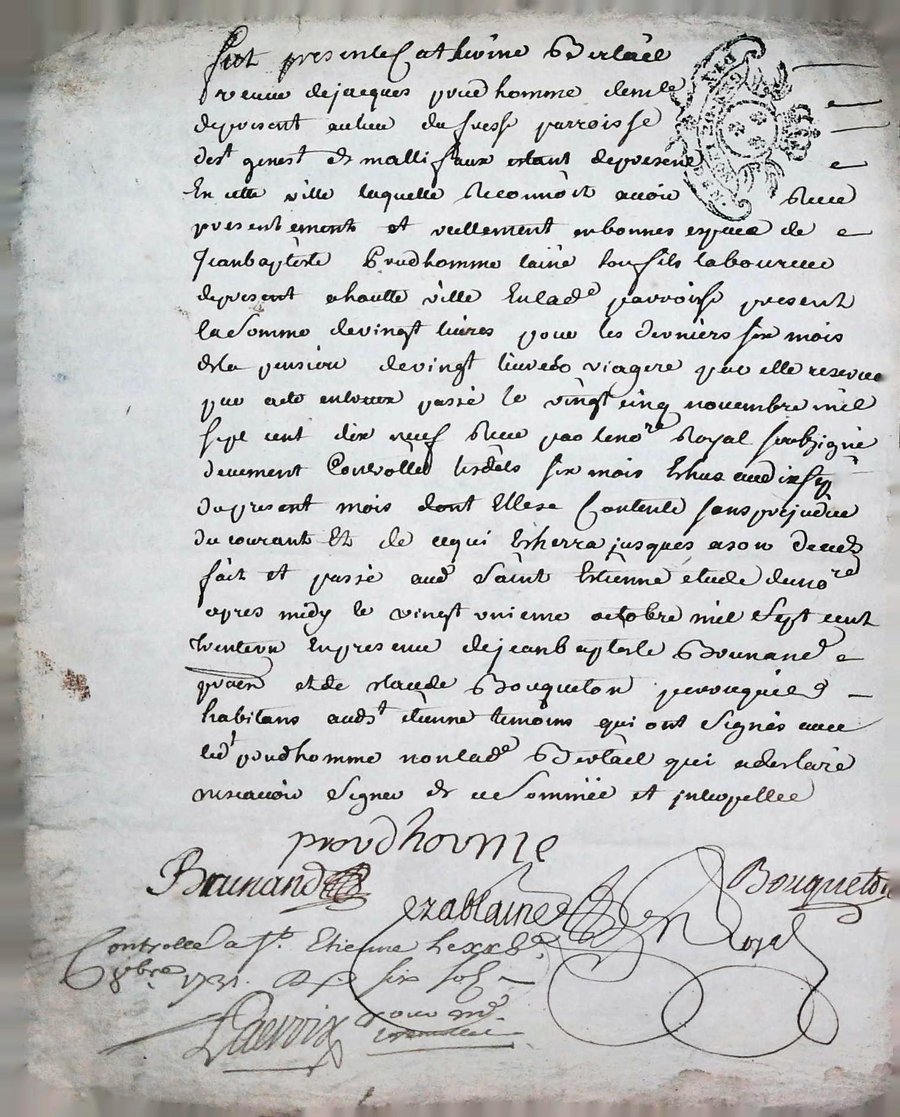 fut presente Catherine Bertâil
veuve de jacques prudhomme dem
de present au lieu du fresse parroisse
de st genest de mallifaux estant de present
En cette ville laquelle Reconnoit avoir Receu
presentement et reellement en bonnes especes de
Jean baptiste Prudhomme laîné son fils laboureur
de present a hautte ville En lade parroisse present
la Somme de vingt livres pour les derniers six mois
de la pension de vingt livres viagere par elle reservee
par acte entreux passé le vingt cinq novembre mil
sept cent dix neuf Receu par le nore Royal soubsigné
deuement Controllée lesdits six mois Echus au dix sept
du present mois dont Elle se Contente sans prejudice
du courant Et de ce qui Echerra jusques a son deceds
fait et passé aud Saint Estienne étude du nore
apres midy le vingt unieme octobre mil Sept cent
trente un En presence de jean baptiste Brunand
et de Claude Bouqueton perruquiers
habitans aud st étienne temoins qui ont Signés avec
led prudhomme non lade Bertâil qui a declaré
ne scavoir Signer de ce Sommée et interpellée
proudhomme
Brunand Bouqueton
ezablaine Royal
Controllé a St. Etienne le xx
8bre 1731. R six sols
Lacroix pour mr.